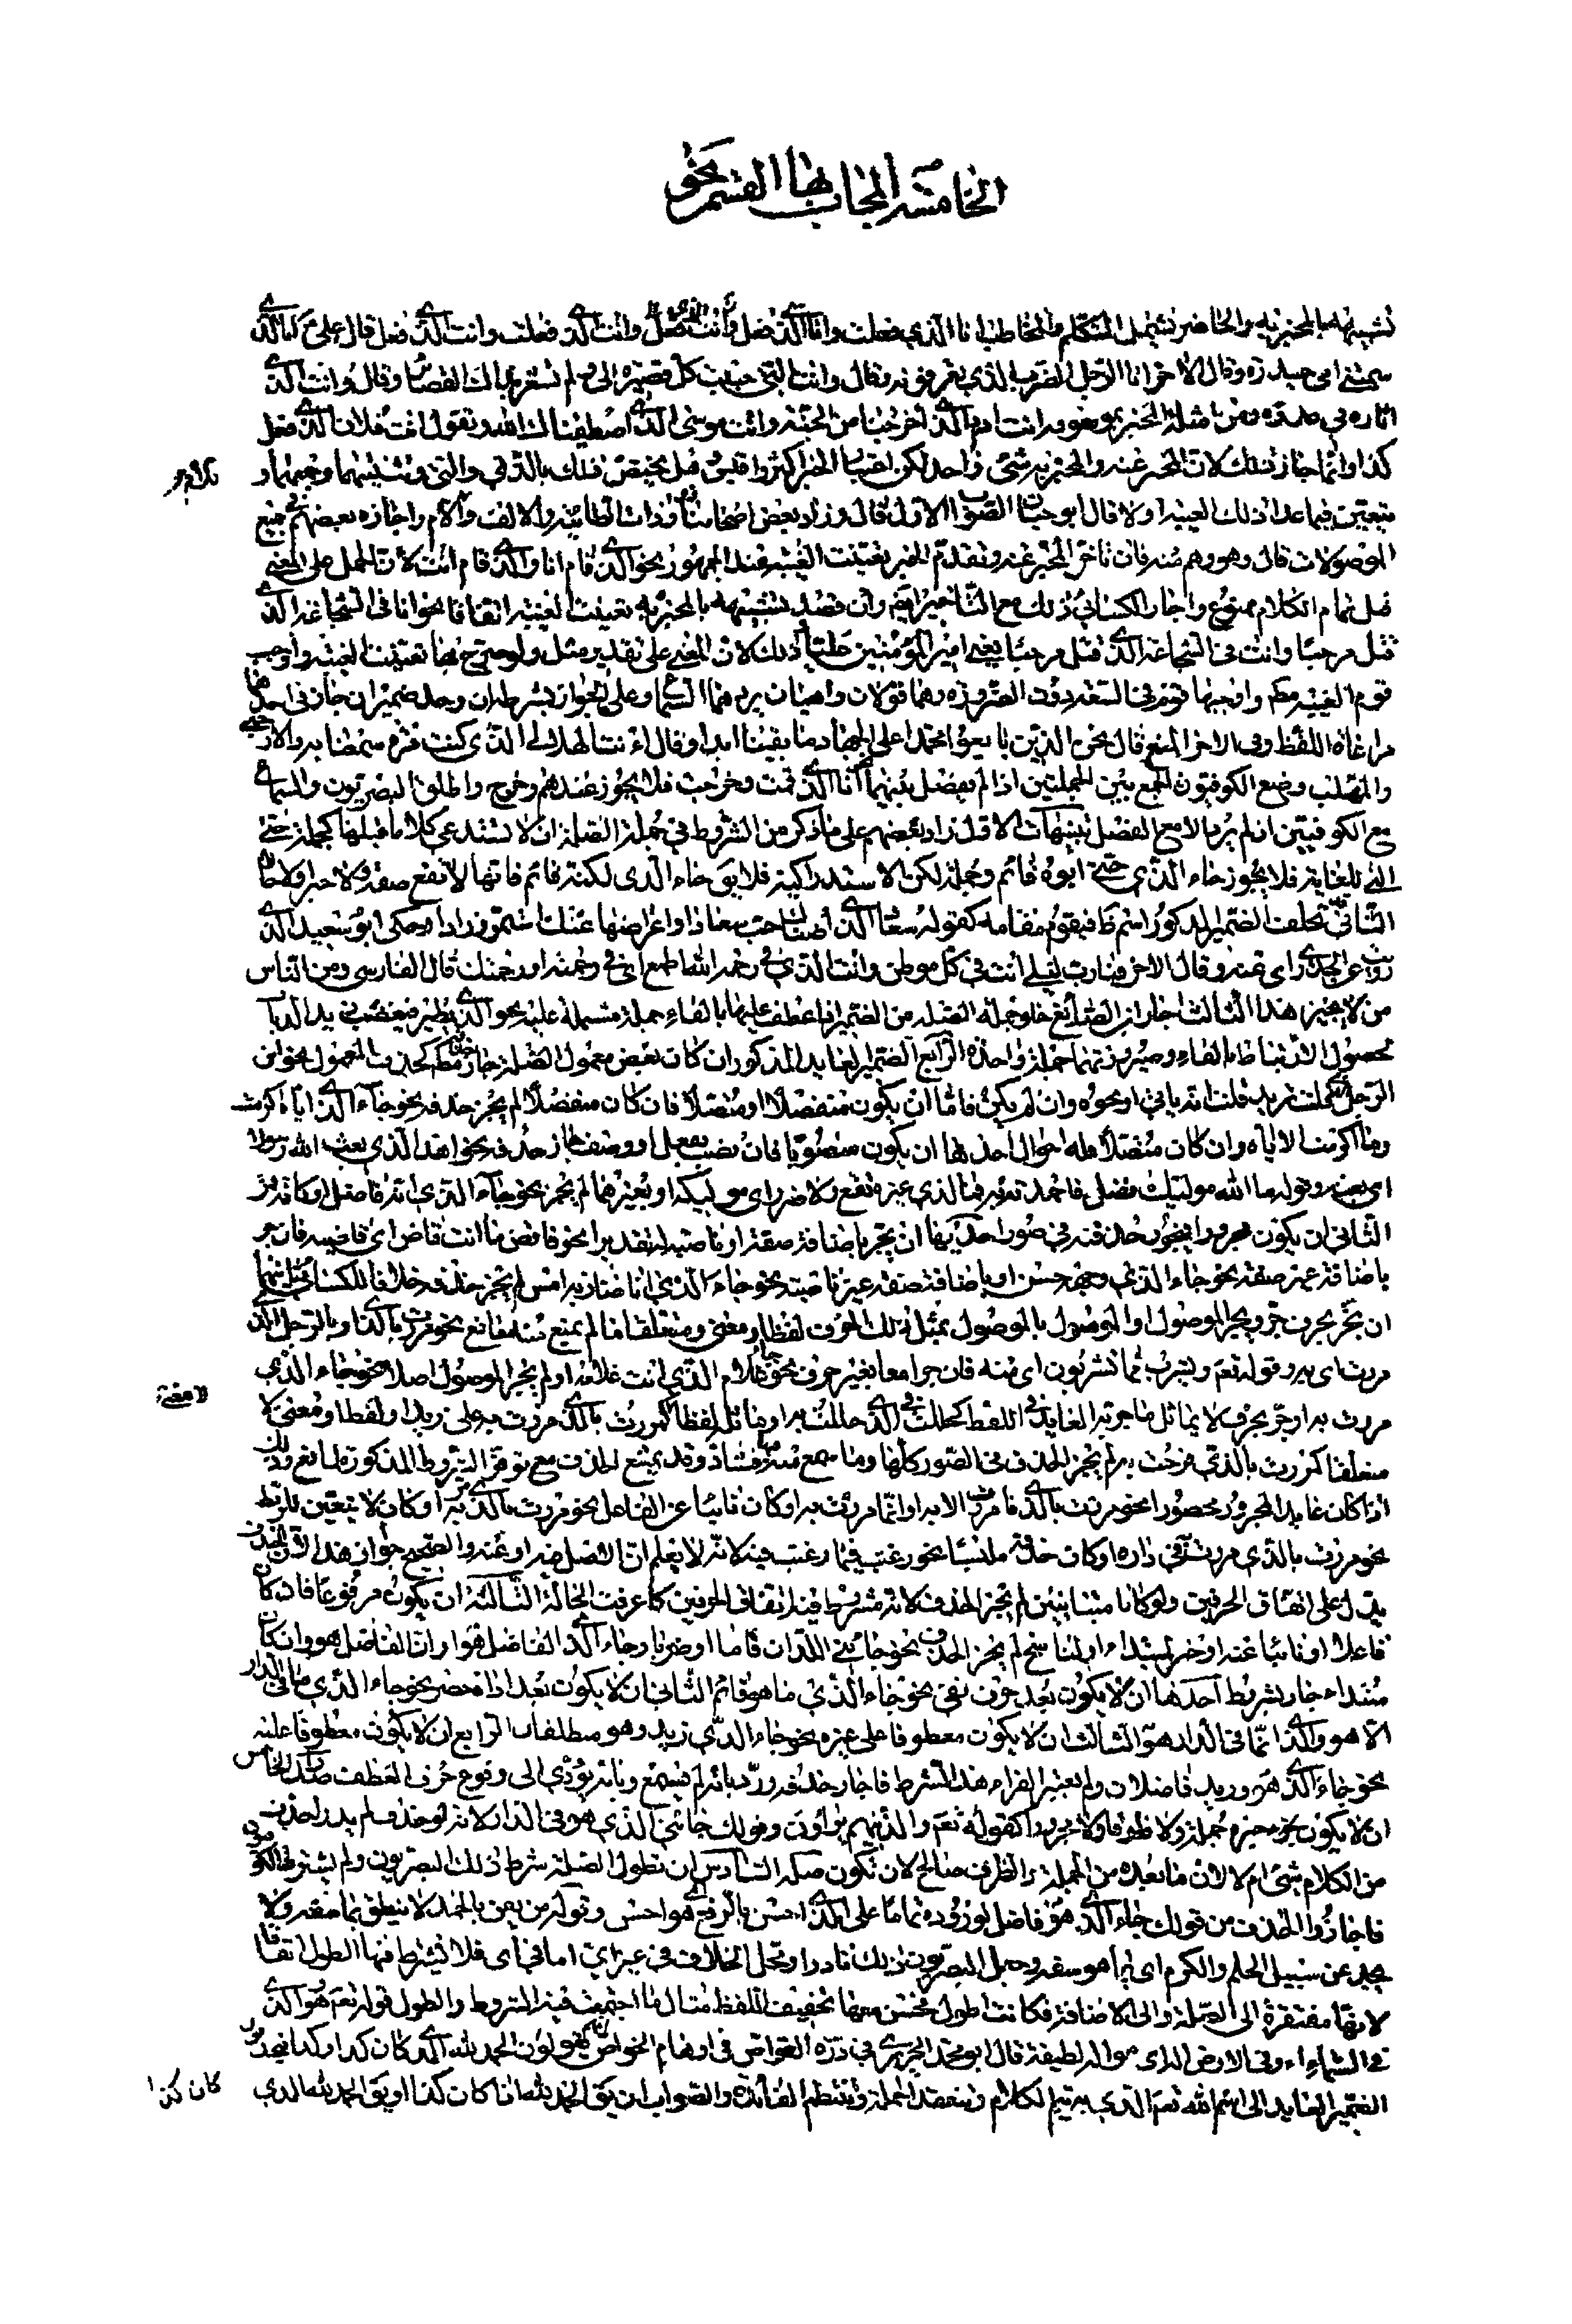 الخامسة المجاب بها القسم نحو
تشبيهه بالمخبر به والحاضر يشمل المتكلم والمخاطب انا الذي فعلت وانا الذي فعل وانت الذي فعلت وانت الذي فعل قال علي
سمتني امي حيدره وقال الاخر انا الرجل الضرب الذي تعرفونه وقال وانت التي حببت كل قصيرة الي ولم تشعر بذاك القصائر وقال وانت الذي
ومن امثلة المخبر به وهو انت ادم الذي اخرجتنا من الجنة وانت موسى الذي اصطفاك الله وتقول انت فلان الذي فعل
كذا وانما جاز ذلك لان المخبر عنه والمخبر به شيء واحد لكن اعتبار الخبر اكثر واقيس قيل يختص ذلك بالذي والتي وتثنيتهما وجمعهما و
يتعين فيما عدا ذلك الغيبة اولا قال ابو حيان الصواب الاول قال وزاد بعض اصحابنا وذات الطائية والالف واللام واجازه بعضهم في جميع
الموصولات قال وهو وهم منه فان تاخر المخبر عنه وتقدم الخبر تعينت الغيبة عند الجمهور نحو الذي قام انا والذي قام انت لان الحمل على المعنى
قبل تمام الكلام ممنوع واجاز الكسائي ذلك مع التاخير ايضا وان قصد تشبيهه بالمخبر به تعينت الغيبة اتفاقا نحو انا في الشجاعة الذي
قتل مرحبا وانت في الشجاعة الذي قتل مرحبا يعني امير المؤمنين عليا ذلك لان المعنى على تقدير مثل ولو صرح بها تعينت الغيبة واوجب
قوم الغيبة مط واوجبها قوم في السعة دون الضرورة وهما قولان واهيان يردهما السماع وعلى الجواز بشرطه ان وجد ضميران جاز في احدهما
مراعاة اللفظ وفي الاخر المعنى قال نحن الذين بايعوا محمدا على الجهاد ما بقينا ابدا وقال اانت الهلالي الذي كنت مرة سمعنا به والارحبي
والمهلب ومنع الكوفيون الجمع بين الجملتين اذا لم يفصل بينهما نحو انا الذي قمت وخرجت فلا يجوز عندهم وخرج واطلق البصريون والسماع
مع الكوفيين اذ لم يرد الا مع الفصل تنبيهات الاول زاد بعضهم على ما ذكر من الشروط في جملة الصلة ان لا تستدعي كلاما قبلها كجملة حتى
التي للغاية فلا يجوز جاء الذي حتى ابوه قائم وجملة لكن الاستدراكية فلا يق جاء الذي لكنه قائم فانها لا تقع صفة ولا خبرا ولا حالا
الثاني قد يخلف الضمير المذكور اسم ظ فيقوم مقامه كقوله سعاد الذي اضناك حب سعادا واعراضها عنك استمر وزادا وحكى ابو سعيد الذي
رويت عن الخدري اي عنه وقال الاخر فيا رب ليلى انت في كل موطن وانت الذي في رحمة الله اطمع اي في رحمته او رحمتك قال الفارسي ومن الناس
من لا يجيز هذا الثالث اجاز ابن الصائغ خلو جملة الصلة من الضمير اذا عطف عليها بالفاء جملة مشتملة عليه نحو الذي يطير فيغضب زيد الذباب
لحصول الارتباط بالفاء وصيرورتهما جملة واحدة الرابع الضمير العايد المذكور ان كان بعض معمول الصلة جاز حذفه مط كحذف المعمول نحو اين
الرجل الذي قلت تريد قلت انه ياتي او نحوه وان لم يكن فاما ان يكون منفصلا او متصلا فان كان منفصلا لم يجز حذفه نحو جاء الذي اياه اكرمت
وما اكرمت الا اياه وان كان متصلا فله احوال احدها ان يكون منصوبا فان نصب بفعل او وصف جاز حذفه نحو اهذا الذي بعث الله رسولا
اي بعثه وقوله ما الله موليك فضل فاحمدنه به فما لدى غيره نفع ولا ضرر اي موليكه او بغيرهما لم يجز نحو جاء الذي انه فاضل او كانه قمر
الثاني ان يكون مجرورا فيجوز حذفه في صور احديها ان يجر باضافة صفة ناصبة له تقديرا نحو فاقض ما انت قاض اي قاضيه فان جر
باضافة غير صفة نحو جاء الذي وجهه حسن او باضافة صفة غير ناصبة نحو جاء الذي انا ضاربه امس لم يجز حذفه خلافا للكسائي ثانيها
ان يجر بحرف جر ويجر الموصول او الموصوف بالموصول بمثل ذلك الحرف لفظا ومعنى ومتعلقا ما لم يمنع منه مانع نحو مررت بالذي او بالرجل الذي
مررت اي به وقوله تعم ويشرب مما تشربون اي منه فان جرا معا بغير حرف نحو جاء غلام الذي انت غلامه او لم يجر الموصول اصلا نحو جاء الذي
مررت به او جر بحرف لا يماثل ما جر به العايد في اللفظ كحللت في الذي حللت به او ماثل لفظا كمررت بالذي مررت به على زيد او لفظا ومعنى لا
متعلقا كمررت بالذي فرحت به لم يجز الحذف في الصور كلها وما سمع منها فشاذ وقد يمتنع الحذف مع توفر الشروط المذكورة لمانع وذلك
اذا كان عايد المجرور محصورا نحو مررت بالذي ما مررت الا به او انما مررت به او كان نائبا عن الفاعل نحو مررت بالذي مر به او كان لا يتعين للربط
نحو مررت بالذي مررت به في داره او كان حذفه ملبسا نحو رغبت فيما رغبت فيه لانه لا يعلم ان الاصل فيه او عنه والصحيح جواز هذا لان الحذف
يدل على اتفاق الحرفين ولو كانا متباينين لم يجز الحذف لانه مشروط فيه اتفاق الحرفين كما عرفت الحالة الثالثة ان يكون مرفوعا فان كان
فاعلا او نائبا عنه او خبر المبتداء او لناسخ لم يجز الحذف نحو جائني اللذان قاما او ضربا وجاء الذي الفاضل هو او ان الفاضل هو وان كان
مبتداء جاز بشروط احدها ان لا يكون بعد حرف نفي نحو جاء الذي ما هو قائم الثاني ان لا يكون بعد اداة حصر نحو جاء الذي ما في الدار
الا هو والذي انما في الدار هو الثالث ان لا يكون معطوفا على غيره نحو جاء الذي زيد وهو منطلقان الرابع ان لا يكون معطوفا عليه
نحو جاء الذي هو وزيد فاضلان ولم يعتبر الفراء هذا الشرط فاجاز حذفه ورد بانه لم يسمع وبانه يؤدي الى وقوع حرف العطف صدرا الخامس
ان لا يكون خبره جملة ولا ظرفا ولا مجرورا كقوله تعم والذين هم يراؤن وقولك جائني الذي هو في الدار لانه لو حذف لم يدر احذف
من الكلام شيء ام لا لان ما بعده من الجملة والظرف صالح لان يكون صلة السادس ان تطول الصلة شرط ذلك البصريون ولم يشترطه الكوفيون
فاجازوا الحذف من قولك جاء الذي هو فاضل لوروده تماما على الذي احسن بالرفع اي هو احسن وقوله من يعن بالحمد لا ينطق بما سفه ولا
يحد عن سبيل الحلم والكرم اي بما هو سفه وجعل البصريون ذلك نادرا ومحل الخلاف في غير اي اما في اي فلا يشترط فيها الطول اتفاقا
لانها مفتقرة الى الصلة والى الاضافة فكانت اطول فحسن معها تخفيف اللفظ مثال ما اجتمعت فيه الشروط والطول قوله تعم هو الذي
في السماء اله وفي الارض اله اي هو اله لطيفة قال ابو محمد الحريري في درة الغواص في اوهام الخواص يقولون الحمد لله الذي كان كذا وكذا فيحذفون
الضمير العايد الى اسم الله تعم الذي به يتم الكلام وتنعقد الجملة وتنتظم الفائدة والصواب ان يق الحمد لله اذ كان كذا او يق الحمد لله الذي
كان كذا